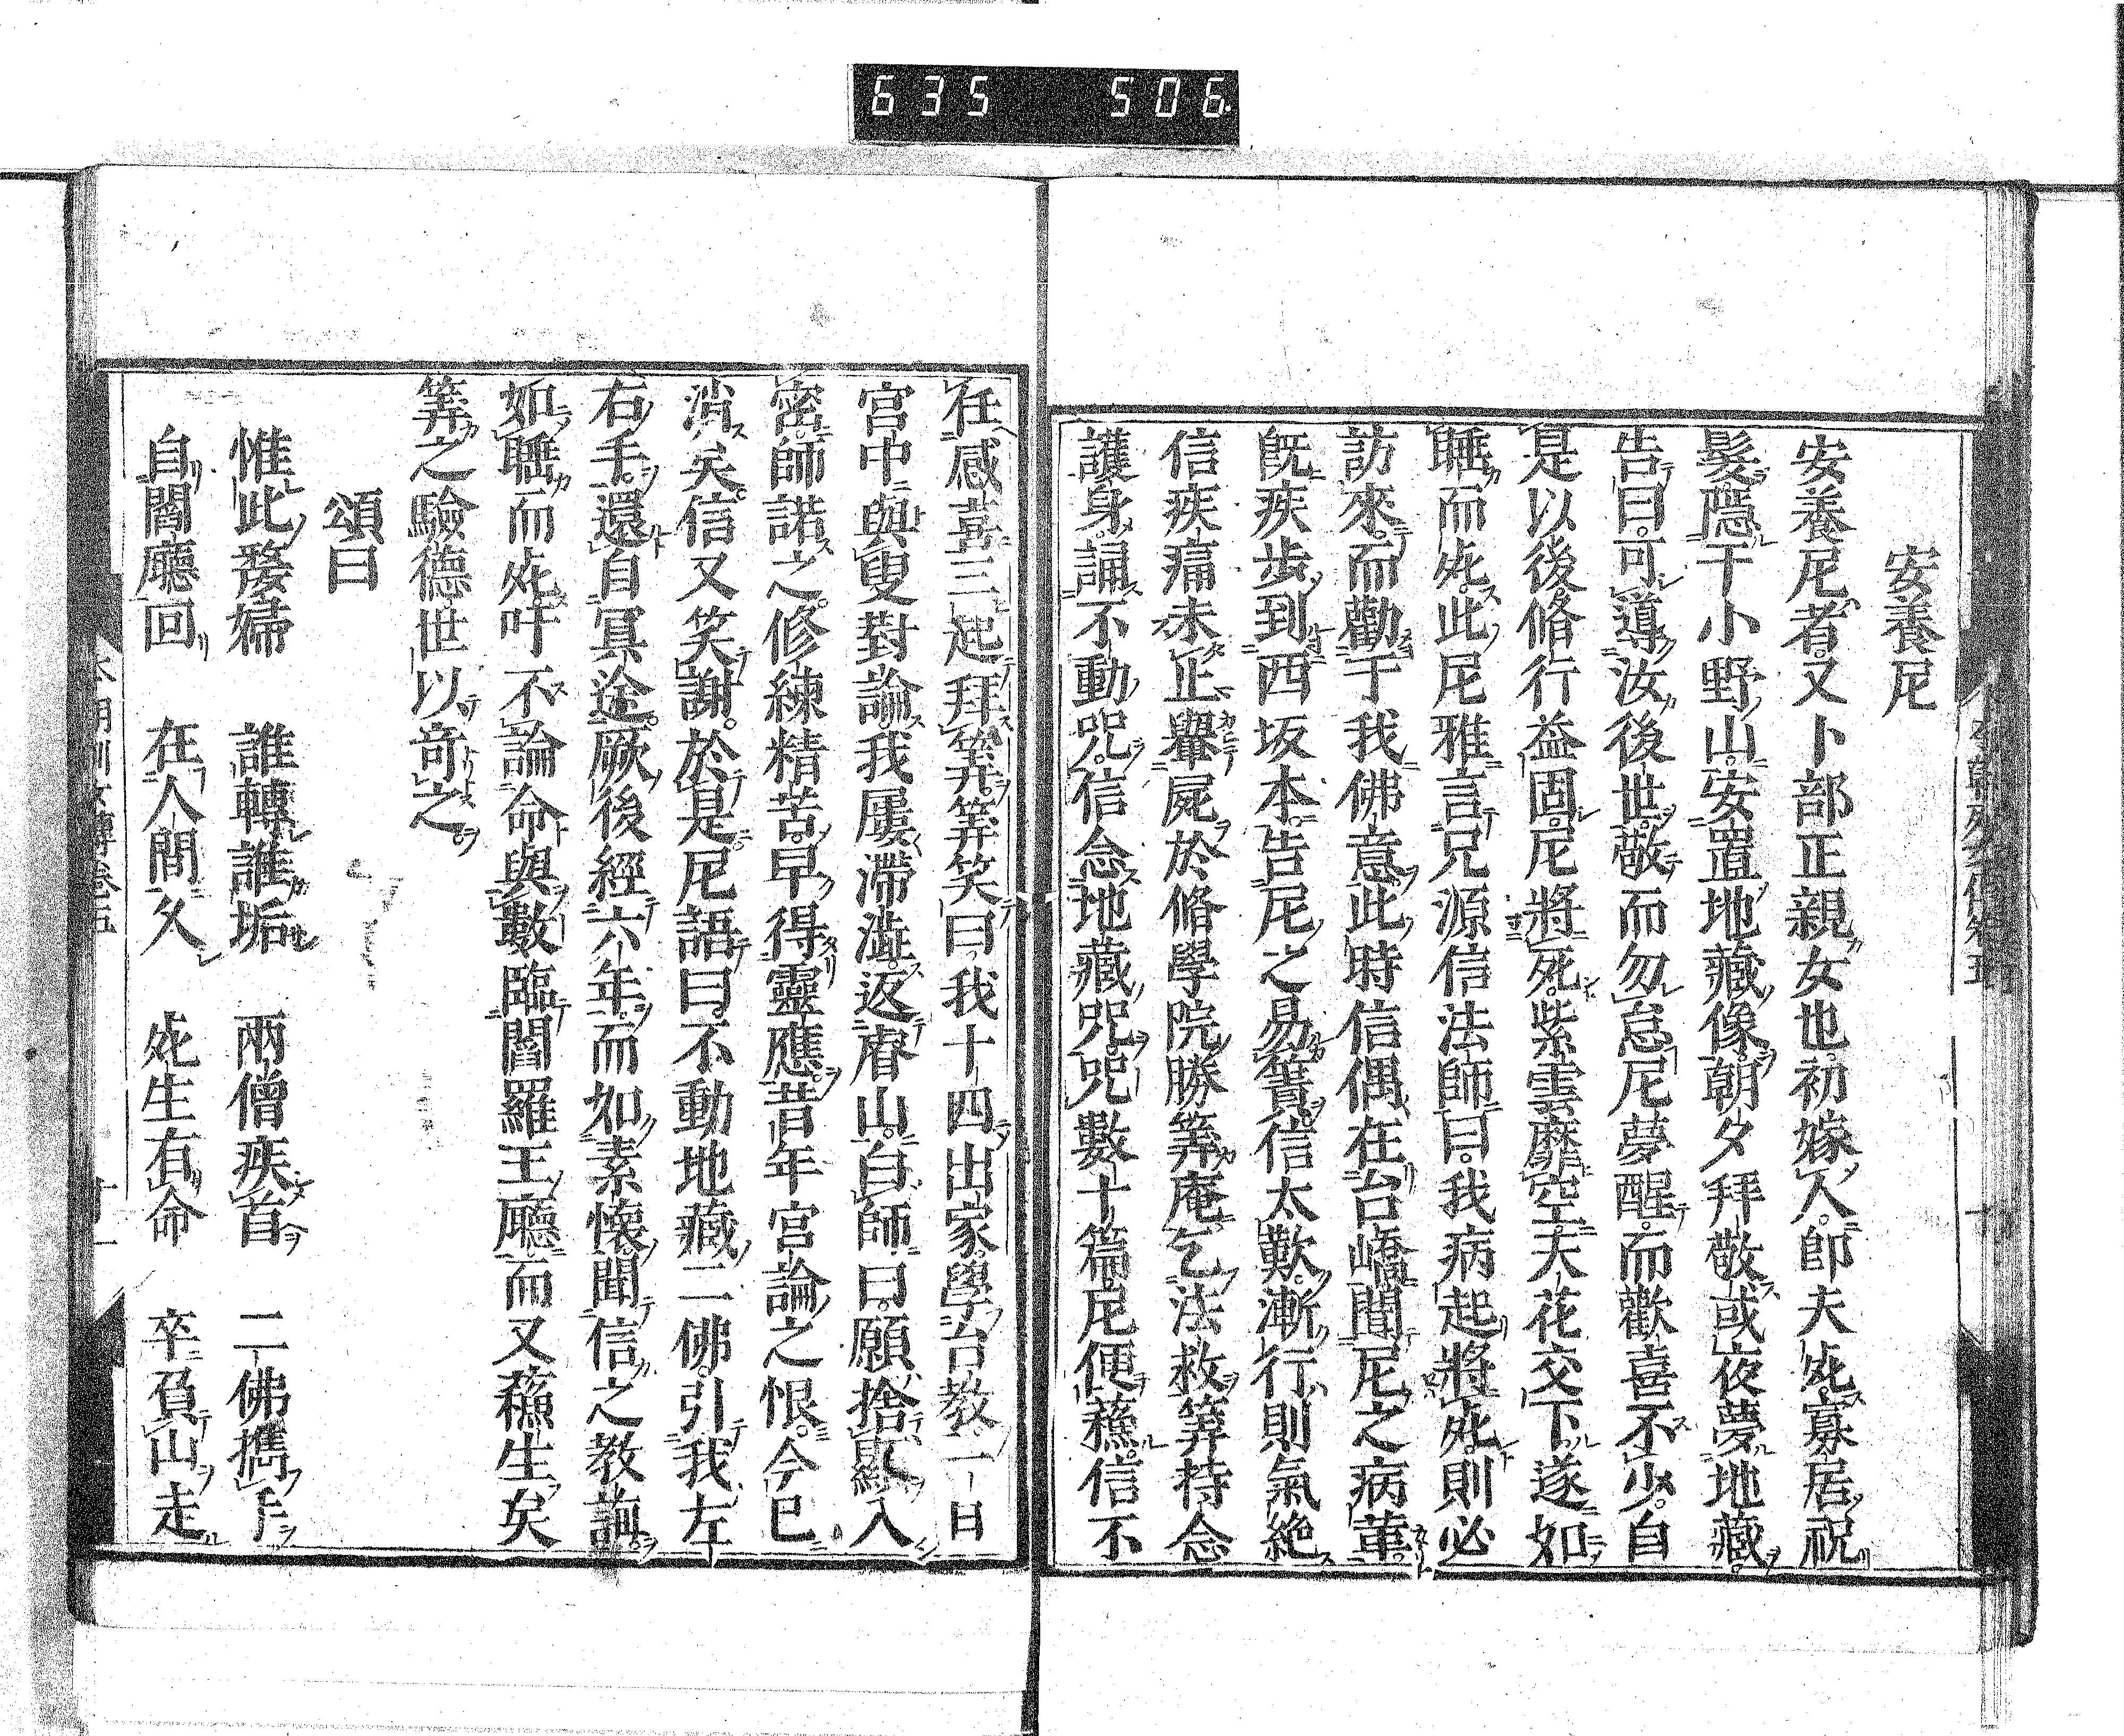 635 506
安養尼
安養尼者又卜部正親女也初嫁人即夫死寡居祝
髮隱于小野山安置地藏像朝夕拜敬或夜夢地藏
告曰可導汝後世敬而勿怠尼夢醒而歡喜不少自
是以後脩行益固尼將死紫雲靡空天花交下遂如
睡而死此尼雅言兄源信法師曰我病起將死則必
訪來而勸于我佛意此時信偶在台嶠聞尼之病革
既疾步到西坂本告尼之易簀信太歎漸行則氣絶
信疾痛未止轝屍於脩學院勝筭庵乞法救筭持念
護身誦不動咒信念地藏咒咒數十篇尼便蘇信不
任感喜三起拜筭筭笑曰我十四出家學台教一日
宮中與叟對論我屢滯澁返睿山白師曰願捨顯入
密師諾之修練精苦早得靈應昔年宮論之恨今已
消矣信又笑謝於是尼語曰不動地藏二佛引我左
右手還自冥途厥後經六年而如素懷聞信之教詢
如睡而死吁不論命與數臨閻羅王廳而又蘇生矣
筭之驗德世以奇之
頌曰
惟此嫠婦 誰轉誰垢 兩僧疾首 二佛攜手
自閻廳回 在人間久 死生有命 卒負山走
本朝列女傳卷五